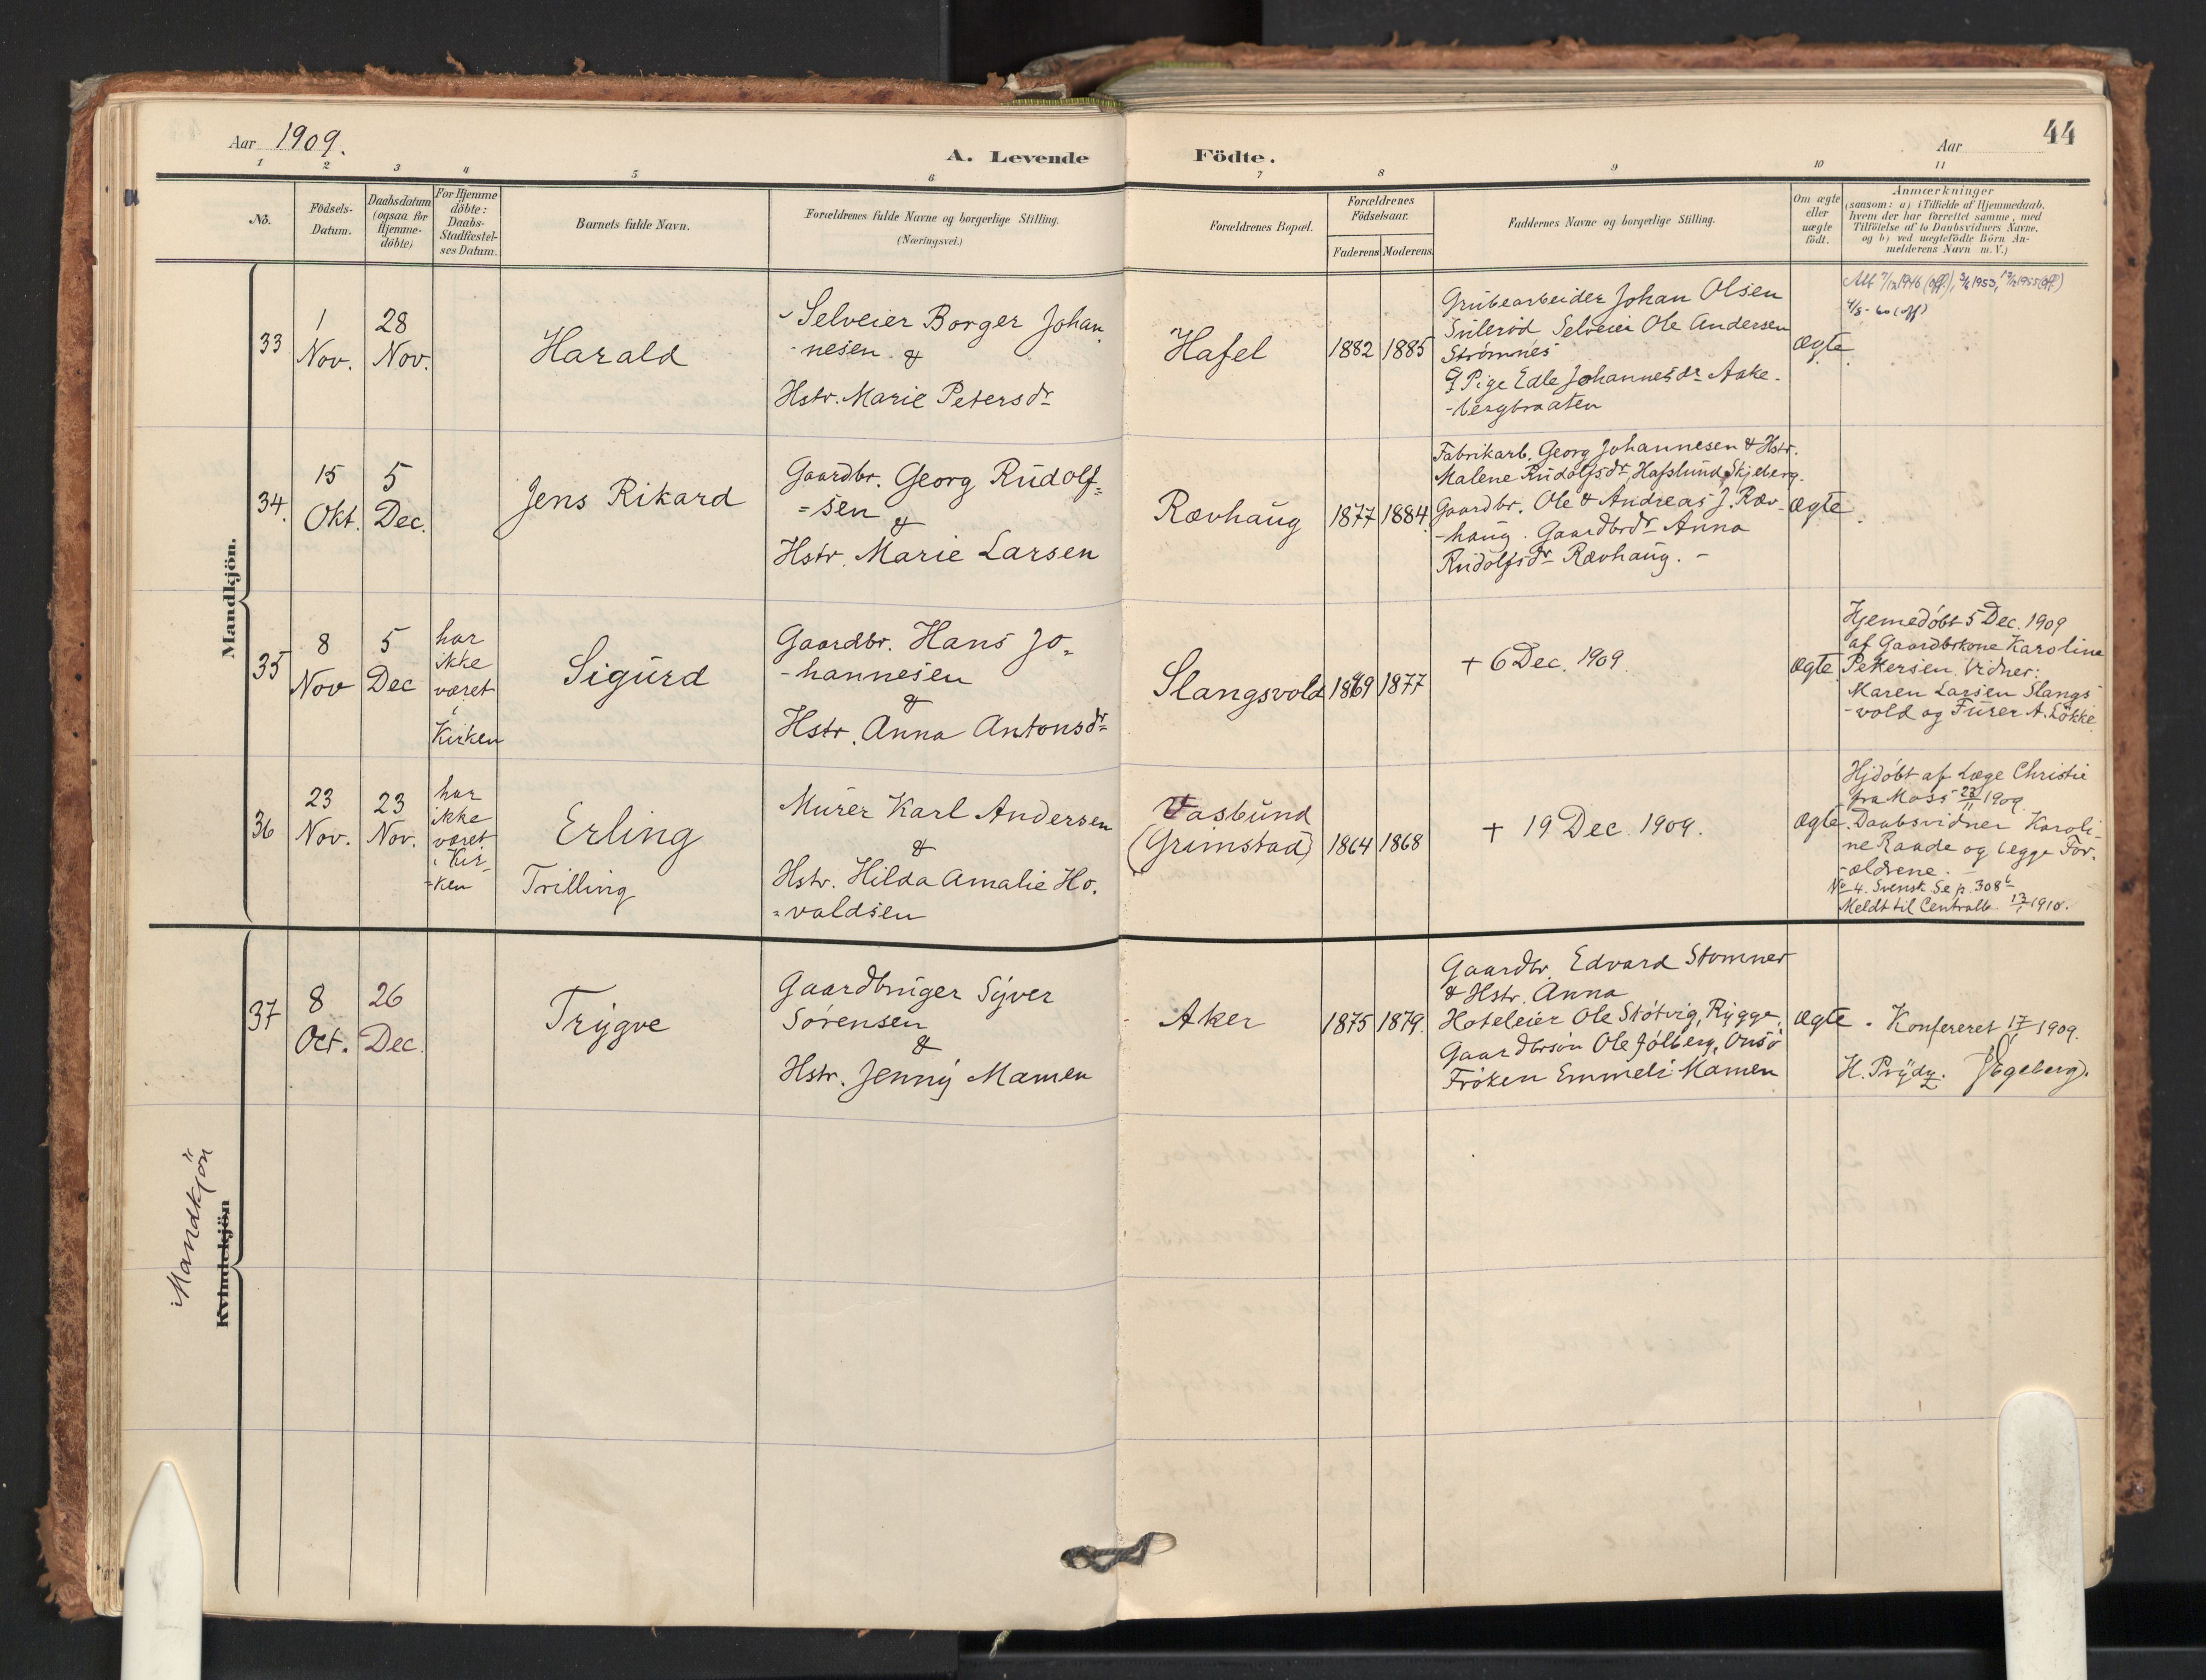 Aar 1909.
A. Levende
Födte.
Aar
44
1 2 3 4 5 6 7 8 9 10 11
No.
Födsels-
Datum.
Daabsdatum
(ogsaa for
Hjemme-
döbte)
For Hjemme
döbte:
Daabs-
Stadfæstel-
ses Datum.
Barnets fulde Navn.
Forældrenes fulde Navne og borgerlige Stilling.
(Næringsvei.)
Forældrenes Bopæl.
Forældrenes
Födselsaar.
Faderens
Moderens
Faddernes Navne og borgerlige Stilling.
Om ægte
eller
uægte
födt.
Anmærkninger
(saasom: a) i Tilfælde af Hjemmedaab.
hvem der har forrettet samme, med
Tilföielse af to Daabsvidners Navne.
og b) ved uægtefödte Börn An-
melderens Navn m. V.)
Mandkjön.
33
1
Nov.
28
Nov.
Harald
Selveier Borger Johan
-nesen &
Hstr. Marie Petersdr
Hafel
1882
1885
Grubearbeider Johan Olsen
Selveier Ole Andersen
Strømnes
& Pige Edle Johannesdr Aake-
-bergbraaten
ægte
34.
15
Okt.
5
Dec.
Jens Rikard
Gaardbr. Georg Rudolf=
=sen
&
Hstr. Marie Larsen
Rævhaug
1877
1884
Fabrikarb. Georg Johannesen & Hstr.
Malene Rudolfsdr Hafslund, Skjeberg.
Gaardbr. Ole & Andreas J. Ræv-
-haug. Gaardbrdr Anna
Rudolfsdr Rævhaug. -
ægte
35
8
Nov
5
Dec
har
ikke
været
i
Kirken
Sigurd
Gaardbr. Hans Jo-
-hannesen
&
Hstr. Anna Antonsdr
Slangsvold
1869
1877
+ 6 Dec. 1909.
ægte
Hjemedøbt 5 Dec. 1909
af Gaardbrkone Karoline
Pettersen. Vidner:
Maren Larsen Slangs
-vold og Furer A. Løkke
36
23
Nov.
23
Nov.
har
ikke
været
i Kir-
-ken
Erling
Trilling
Murer Karl Andersen
&
Hstr. Hilda Amalie Ho-
=valdsen
Vasbund
(Grimstad)
1864
1868
+ 19 Dec. 1909.
ægte
Hjdøbt af Læge Christie
fra Moss 23/11 1909.
Daabsvidner Karoli-
ne Raade og begge For-
-ældrene.
No 4. Svensk. Se p. 308b
Meldt til Centralb. 13/1 1910.
Mandkjön
Kvindekjön
37
8
Oct.
26
Dec.
Trygve
Gaardbruger Syver
Sørensen
&
Hstr. Jenny Mamen
Aker
1875
1879.
Gaardbr. Edvard Stomner
& Hstr. Anna
Hoteleier Ole Støtvig, Rygge,
Gaardbrsøn Ole Jølberg, Onsø
Frøken Emmeli Mamen
ægte
Konfereret 17/ 1909.
H. Prydz. (Egeberg).